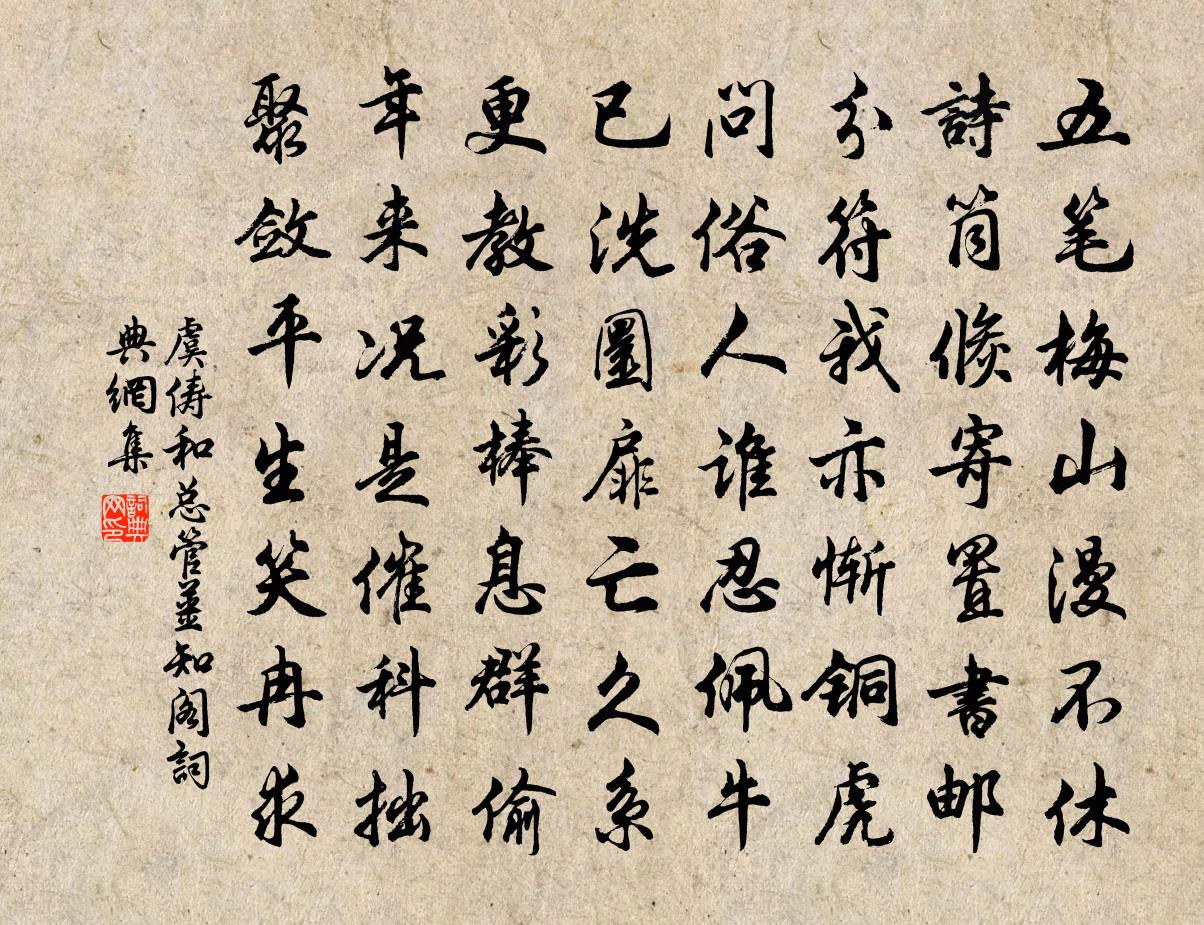 五笔梅山漫不休
詩筒倏寄置書邮
分符我亦惭铜虎
問俗人谁忍佩牛
已洗圜扉亡久系
更教彩棒息群偷
年来况是催科拙
聚敛平生笑冉求
虞俦和总管薑知阁詞
典網集
詞典
网印